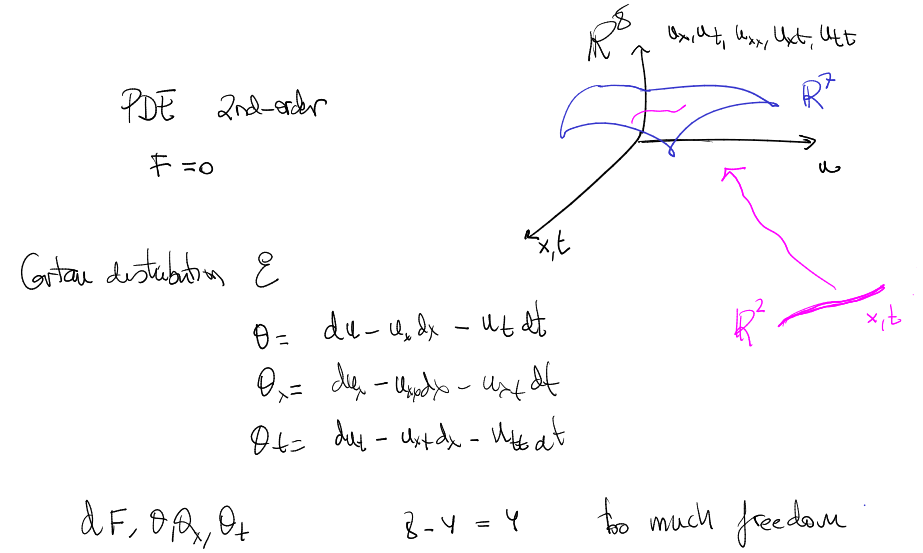 ℝ⁸ uₓ, uₜ, uₓₓ, uₓₜ, uₜₜ
PDE 2nd-order
ℝ⁷
F = 0
u
x,t
Cartan distribution
θ = du - uₓ dx - uₜ dt
ℝ² x,t
θₓ = duₓ - uₓₓdx - uₓₜ dt
θₜ = duₜ - uₓₜdx - uₜₜ dt
dF, θ, θₓ, θₜ 8-4 = 4 too much freedom